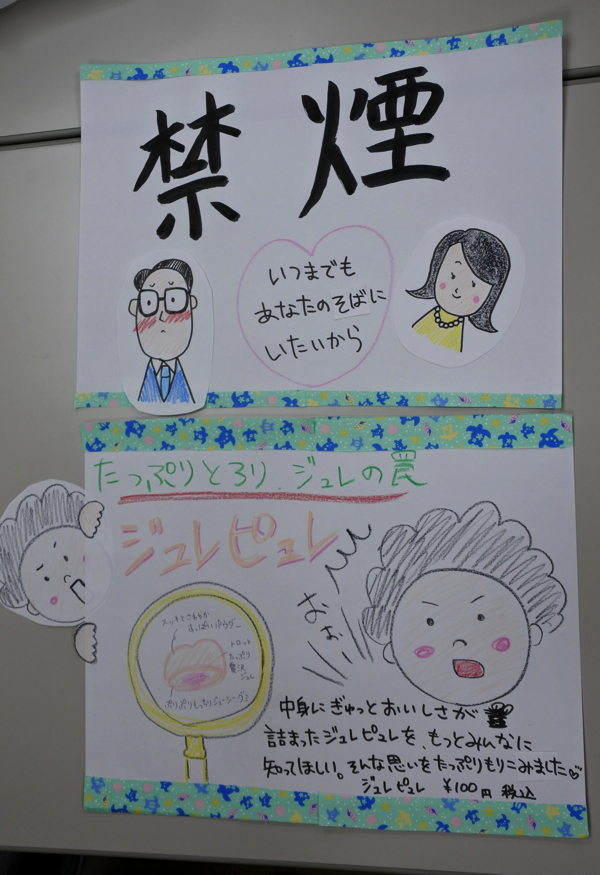 禁煙
いつまでも
あなたのそばに
いたいから
たっぷりとろり、ジュレの罠
ジュレピュレ
すっぱいぱうだー
トロット
たっぷり
贅沢
ジュレ
ぷりぷりもっちりジューシーグミ
中身にぎゅっとおいしさが
詰まったジュレピュレを、もっとみんなに
知ってほしい。そんな思いをたっぷりもりこみました♡
ジュレピュレ ¥100円 税込